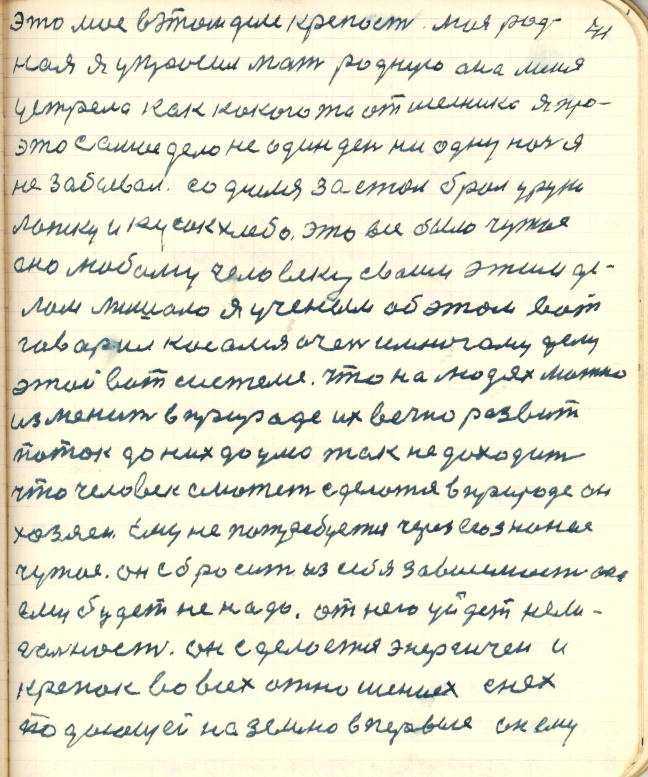 это мое в этом деле крепост. моя род- 71
ная я упросил мат родную она меня
устрела как кокого та отшелника я про
это самое дело не один ден ни одну ноч я
не забывал. содился за стол брал у руки
ложку и кусок хлебо. это все было чужое
оно любому человеку своим этим де-
лом мишало я ученым об этом вот
говарил косался очен многому делу
этой вот системе. что на людях можно
изменит в природе их вечно развит
поток до них до ума так не доходит
что человек сможет сделатся в природе он
хозяен. Ему не потребуется через сознание
чужое. он сбросит из себя зависимост она
ему будет не надо. от него уйдет нели-
галност. он сделается энергичен и
крепок во всех отношениех снех
подающей на землю впервые он ему